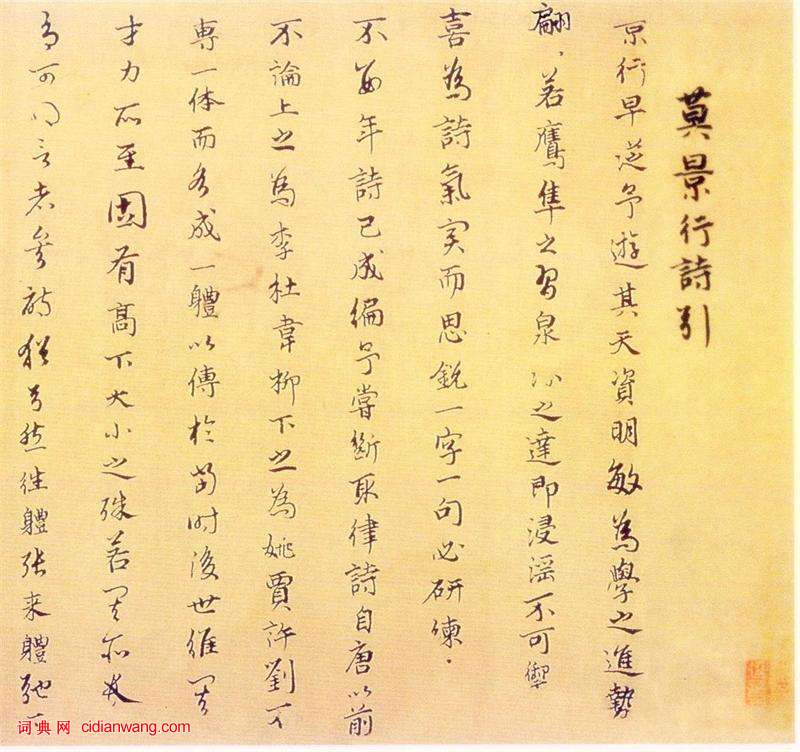 莫景行詩引
景行早從予遊其天資明敏為學之進勢
翩、若鷹隼之習泉水之達即浸淫不可禦
喜為詩氣実而思銳一字一句必研煉、
不數年詩已成編予嘗斷取律詩自唐以前
不論上之為李杜韋柳下之為姚賈許劉不
専一体而各成一體以傳於當时後世雖其
才力所至固有高下大小之殊若其所長
可得言者矣詩猶弓然往體張来體弛
词典网 cidianwang.com/